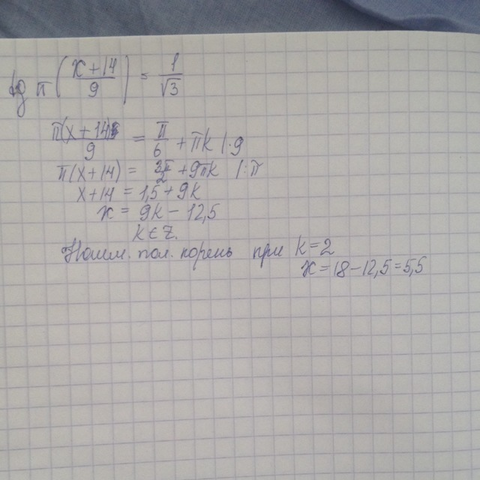 tg π(x+14/9) = 1/√3
π(x+14)/9 = π/6 + πk |·9
π(x+14) = 3π/2 + 9πk |:π
x+14 = 1,5+9k
x = 9k − 12,5
k ∈ Z.
Наим. пол. корень при k=2
x = 18−12,5=5,5